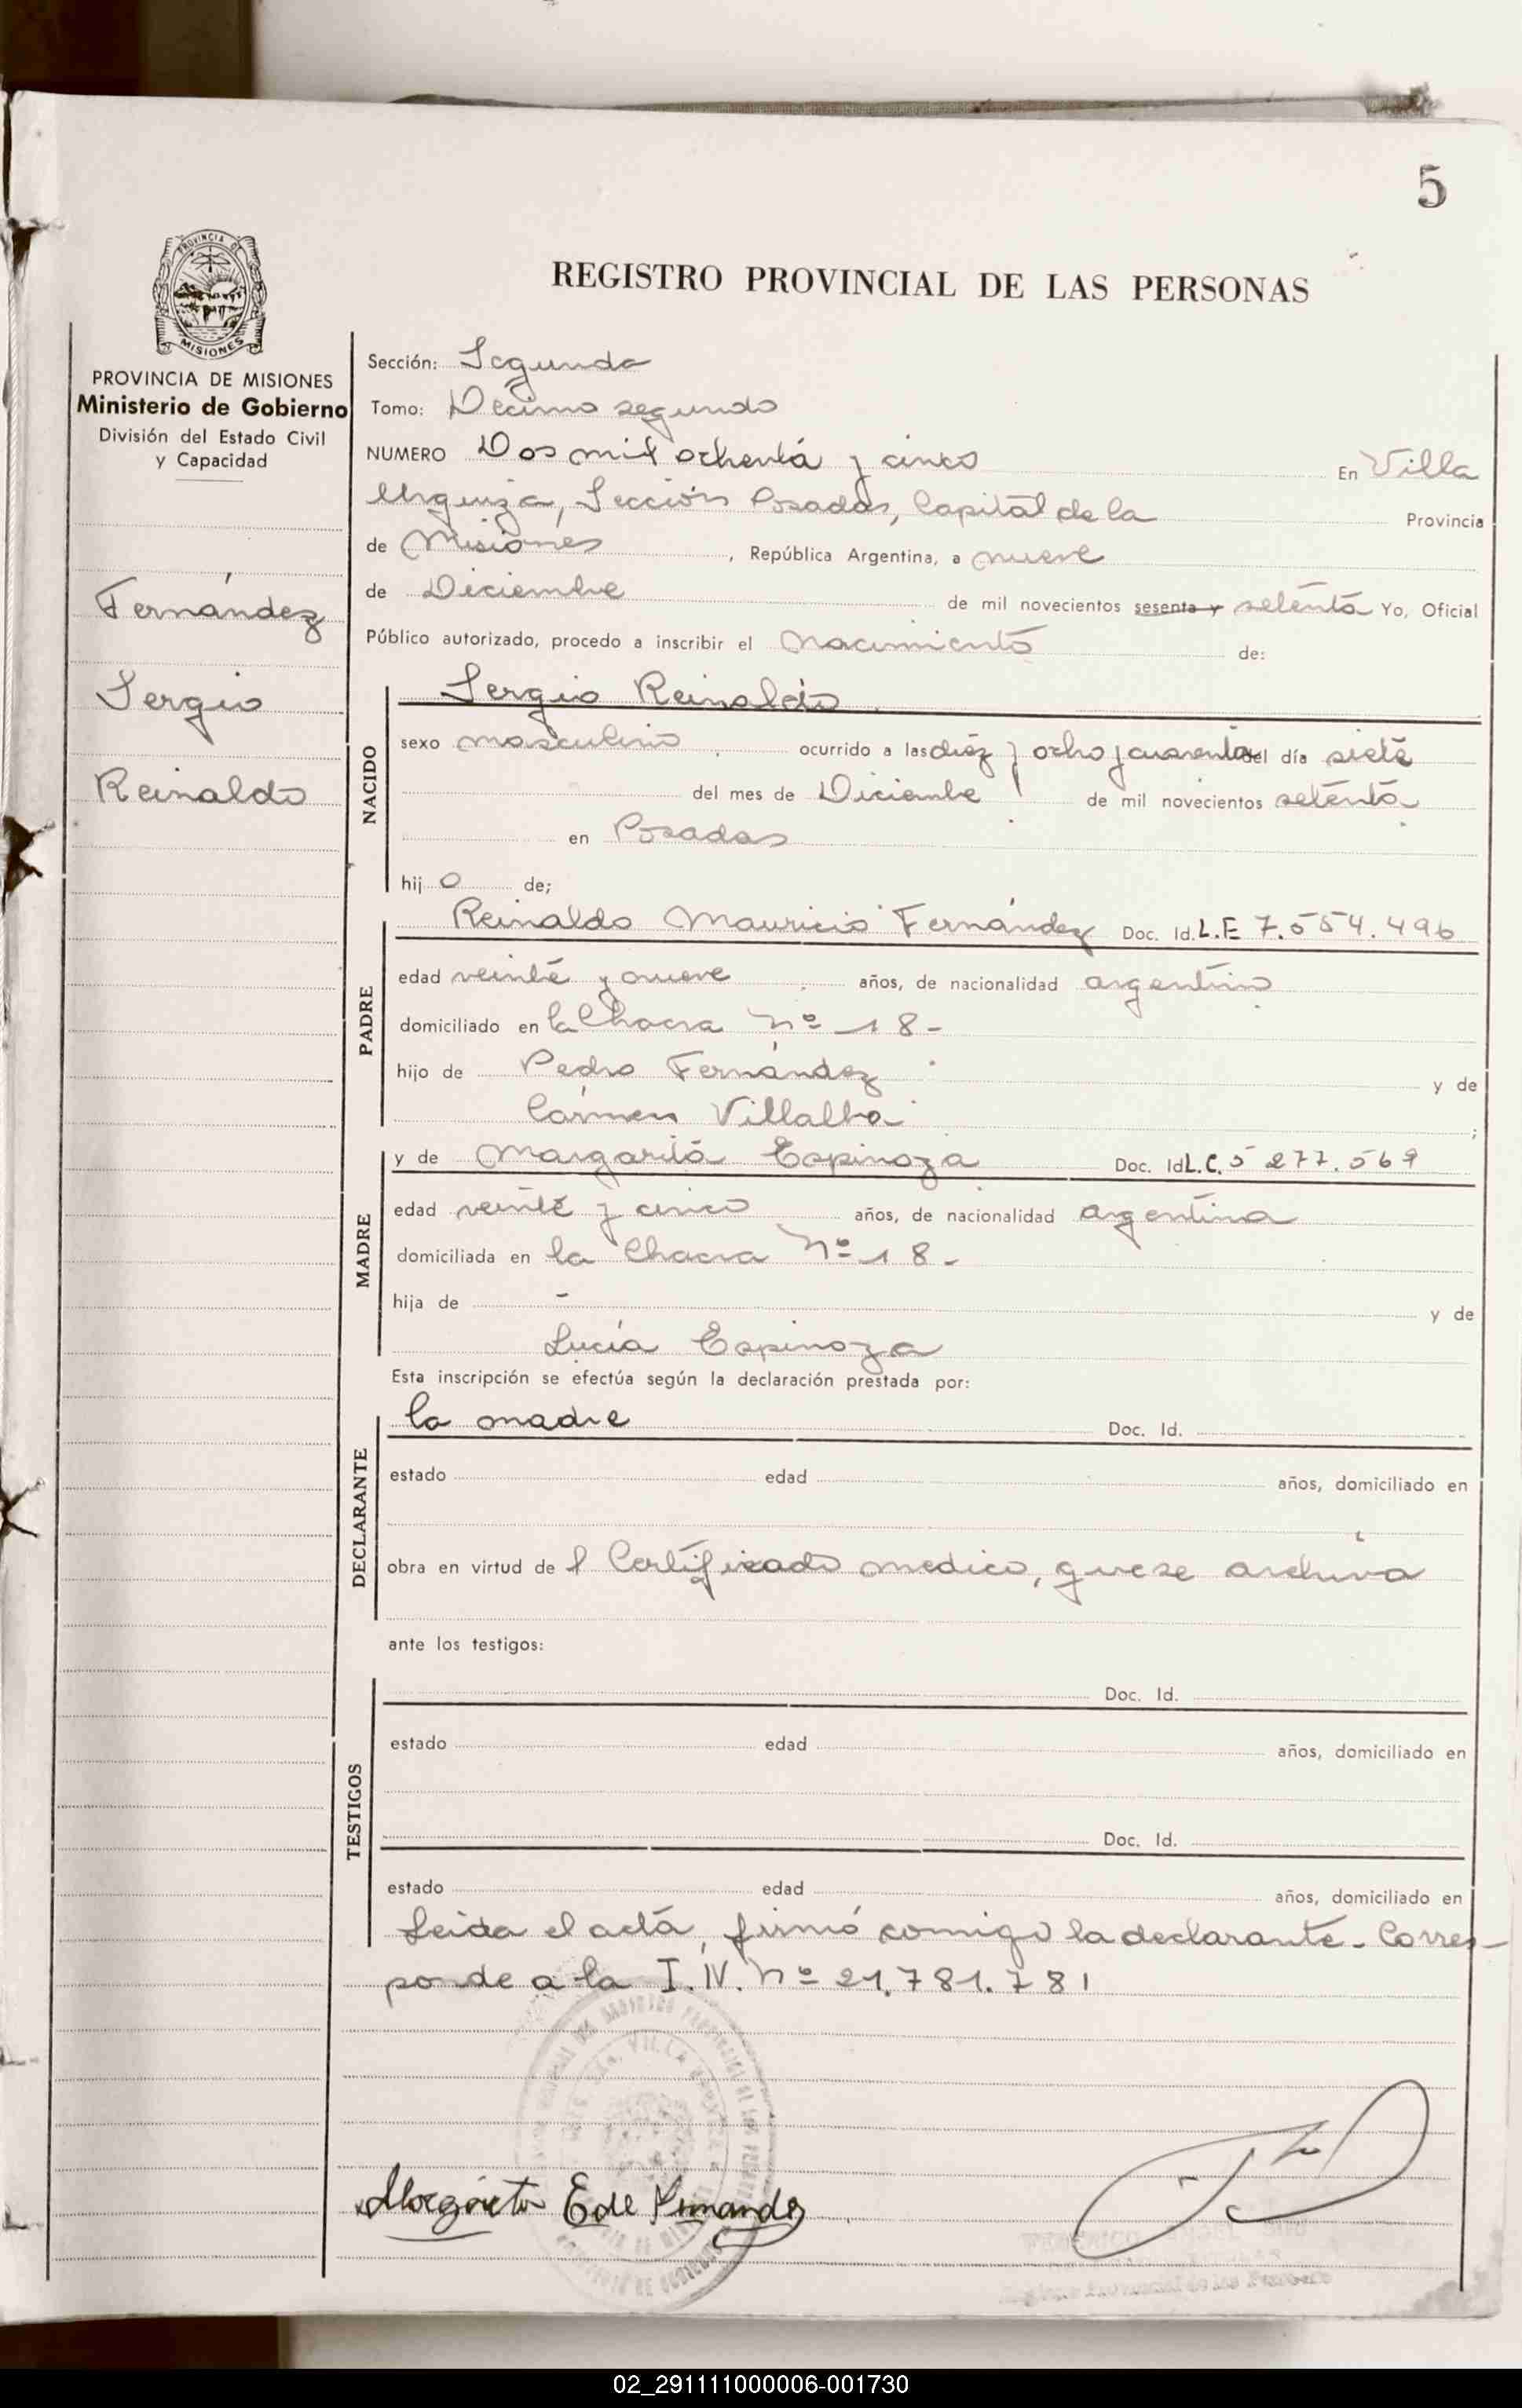 5
PROVINCIA DE
MISIONES
REGISTRO PROVINCIAL DE LAS PERSONAS
PROVINCIA DE MISIONES
Ministerio de Gobierno
División del Estado Civil
y Capacidad
Fernández
Sergio
Reinaldo
Sección: Segunda
Tomo: Decimo segundo
NUMERO Dos mil ochenta y cinco En Villa
Urquiza, Sección Posadas, Capital de la Provincia
de Misiones, República Argentina, a nueve
de Diciembre de mil novecientos sesenta y setenta Yo, Oficial
Público autorizado, procedo a inscribir el nacimiento de:
NACIDO
Sergio Reinaldo
sexo masculino ocurrido a las diez y ocho y cuarenta del día siete
del mes de Diciembre de mil novecientos setenta
en Posadas
hij o de;
PADRE
Reinaldo Mauricio Fernández Doc. Id. L.E 7.554.496
edad veinte y nueve años, de nacionalidad argentino
domiciliado en la Chacra Nº 18-
hijo de Pedro Fernández y de
Cármen Villalba ;
MADRE
y de Margarita Espinoza Doc. Id L.C. 5 277.569
edad veinte y cinco años, de nacionalidad argentina
domiciliada en la Chacra Nº 18-
hija de - y de
Lucía Espinoza
Esta inscripción se efectúa según la declaración prestada por:
DECLARANTE
la madre Doc. Id.
estado edad años, domiciliado en
obra en virtud de l Certificado medico, que se archiva
ante los testigos:
TESTIGOS
Doc. Id.
estado edad años, domiciliado en
Doc. Id.
estado edad años, domiciliado en
Leida el acta, firmó comigo la declarante. Corres-
ponde a la I.N. Nº 21.781.781
Margarita E de Fernandez
02_291111000006-001730